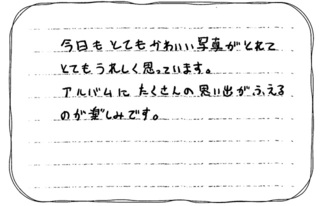 今日もとてもかわいい写真がとれて
とてもうれしく思っています。
アルバムにたくさんの思い出がふえる
のが楽しみです。